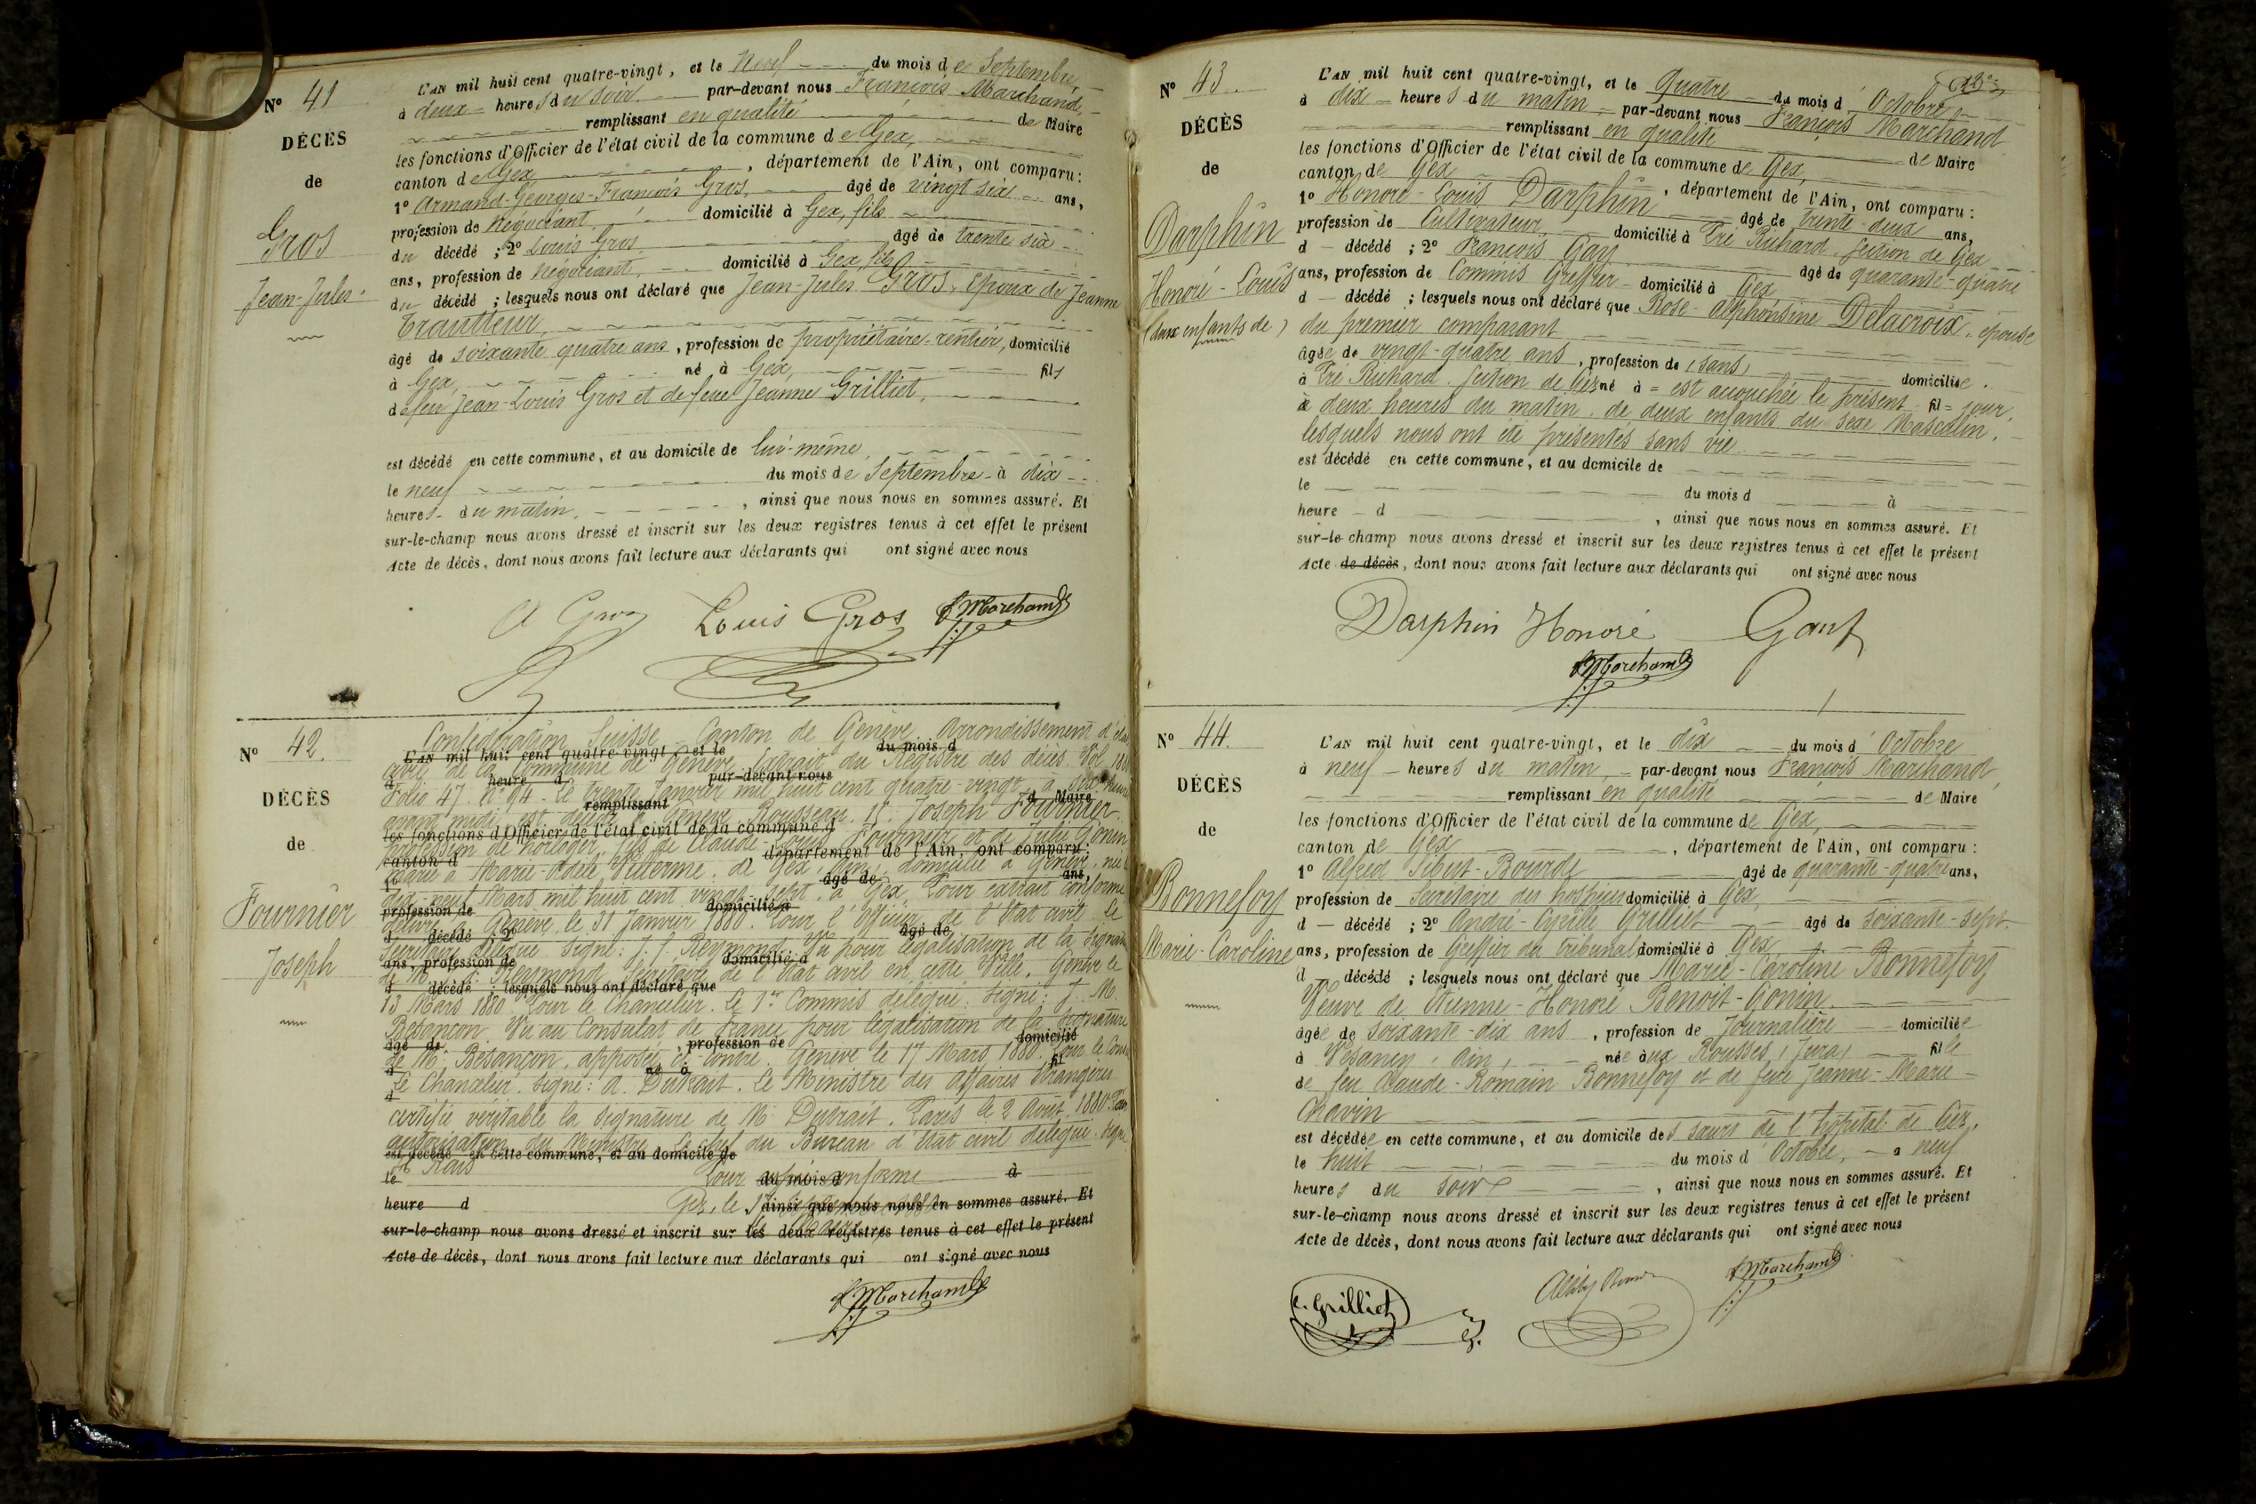 N° 41
DÉCÈS
de
Gros
Jean-Jules
L'AN mil huit cent quatre-vingt, et le Neuf du mois de Septembre,
à deux heures du soir par-devant nous François Marchand,
remplissant en qualité de Maire
les fonctions d'Officier de l'état civil de la commune de Gex,
canton de Gex, département de l'Ain, ont comparu:
1° Armand-Georges-François Gros, âgé de vingt six ans,
profession de Négociant domicilié à Gex, fils
du décédé ; 2° Louis Gros âgé de trente six
ans, profession de Négociant, domicilié à Gex, fils
du décédé ; lesquels nous ont déclaré que Jean-Jules Gros, époux de Jeanne
Trautteur,
âgé de soixante quatre ans, profession de propriétaire-rentier, domicilié
à Gex, né à Gex, fils
de feu Jean-Louis Gros et de feue Jeanne Grilliet,
est décédé en cette commune, et au domicile de lui-même
le neuf du mois de Septembre à dix
heures du matin, ainsi que nous nous en sommes assuré. Et
sur-le-champ nous avons dressé et inscrit sur les deux registres tenus à cet effet le présent
Acte de décès, dont nous avons fait lecture aux déclarants qui ont signé avec nous
A Gros Louis Gros F. Marchand
N° 42.
DÉCÈS
de
Fournier
Joseph
Confédération Suisse Canton de Genève Arrondissement d'état
L'AN mil huit cent quatre-vingt, et le du mois d
civil de la Commune de Genève. Extrait du Registre des décès. Vol. 18
à heure d par-devant nous
Folio 47. N° 94. Le trente Janvier mil huit cent quatre-vingt à heures
remplissant d Maire
avant midi, est décédé à Genève, Rousseau, 11. Joseph Fournier
les fonctions d'Officier de l'état civil de la commune d
profession de horloger, fils de Claude Fournier et de Julie Gonin
canton d département de l'Ain, ont comparu:
marié à Marie-Adèle Vuillerme, de Gex, Ain, domicilié à Genève, né le
1° âgé de ans,
dix neuf Mars mil huit cent vingt-sept à Gex. Pour extrait conforme
profession de domicilié à
délivré à Genève, le 31 Janvier 1880. Pour l'Officier de l'État civil le
d décédé ; 2° âgé de
Secrétaire délégué. Signé: J. J. Reymond. Vu pour légalisation de la Signature
ans, profession de domicilié à
de M. Reymond, Secrétaire de l'État civil en cette Ville. Genève le
d décédé ; lesquels nous ont déclaré que
13 Mars 1880. Pour le Chancelier. Le 1er Commis délégué. Signé: J. M.
Besançon. Vu au Consulat de France pour légalisation de la signature
âgé de , profession de domicilié
de M. Besançon, apposée ci contre. Genève le 17 Mars 1880. Pour le Consul
à né à fil
Le Chancelier. Signé: A. Dutrait. Le Ministre des Affaires Étrangères
d
certifie véritable la signature de M. Dutrait. Paris le 2 Août 1880. Par
autorisation du Ministre, le chef du Bureau d'État civil délégué. Signé
est décédé en cette commune, et au domicile de
le du mois d à
Pour copie conforme
heure d , ainsi que nous nous en sommes assuré. Et
Gex, le
sur-le-champ nous avons dressé et inscrit sur les deux registres tenus à cet effet le présent
Acte de décès, dont nous avons fait lecture aux déclarants qui ont signé avec nous
F. Marchand
N° 43.
DÉCÈS
de
Darphin
Honoré-Louis
(deux enfants de)
L'AN mil huit cent quatre-vingt, et le Quatre du mois d'Octobre
à dix heures du matin par-devant nous François Marchand
remplissant en qualité de Maire
les fonctions d'Officier de l'état civil de la commune de Gex,
canton de Gex, département de l'Ain, ont comparu:
1° Honoré-Louis Darphin âgé de trente-deux ans,
profession de Cultivateur, domicilié à Pré Richard, section de Gex
d décédé ; 2° François Gay âgé de quarante-quatre
ans, profession de Commis Greffier domicilié à Gex
d décédé ; lesquels nous ont déclaré que Rose-Alphonsine Delacroix, épouse
du premier comparant
âgée de vingt-quatre ans, profession de (sans) domiciliée
à Pré Richard, section de Gex né à = est accouchée le présent fil = jour,
à deux heures du matin, de deux enfants du sexe Masculin,
lesquels nous ont été présentés sans vie
est décédé en cette commune, et au domicile de
le du mois d à
heure d , ainsi que nous nous en sommes assuré. Et
sur-le-champ nous avons dressé et inscrit sur les deux registres tenus à cet effet le présent
Acte de décès, dont nous avons fait lecture aux déclarants qui ont signé avec nous
Darphin Honoré Gay F. Marchand
N° 44.
DÉCÈS
de
Bonnefoy
Marie-Caroline
L'AN mil huit cent quatre-vingt, et le dix du mois d'Octobre
à neuf heures du matin, par-devant nous François Marchand,
remplissant en qualité de Maire
les fonctions d'Officier de l'état civil de la commune de Gex,
canton de Gex, département de l'Ain, ont comparu:
1° Alfred Bourde âgé de quarante-quatre ans,
profession de Secrétaire des hospices domicilié à Gex,
d décédé ; 2° André Grilliet âgé de soixante-sept
ans, profession de Greffier du tribunal domicilié à Gex
d décédé ; lesquels nous ont déclaré que Marie-Caroline Bonnefoy
Veuve de Étienne-Honoré Benoit-Gonin
âgée de soixante-dix ans, profession de Journalière domiciliée
à Vesancy, Ain, née aux Rousses, Jura, fille
de feu Claude-Romain Bonnefoy et de feue Jeanne-Marie
Chavin
est décédée en cette commune, et au domicile des sœurs de l'hôpital de Gex,
le huit du mois d'Octobre, à neuf
heures du soir, ainsi que nous nous en sommes assuré. Et
sur-le-champ nous avons dressé et inscrit sur les deux registres tenus à cet effet le présent
Acte de décès, dont nous avons fait lecture aux déclarants qui ont signé avec nous
C. Grilliet F. Marchand